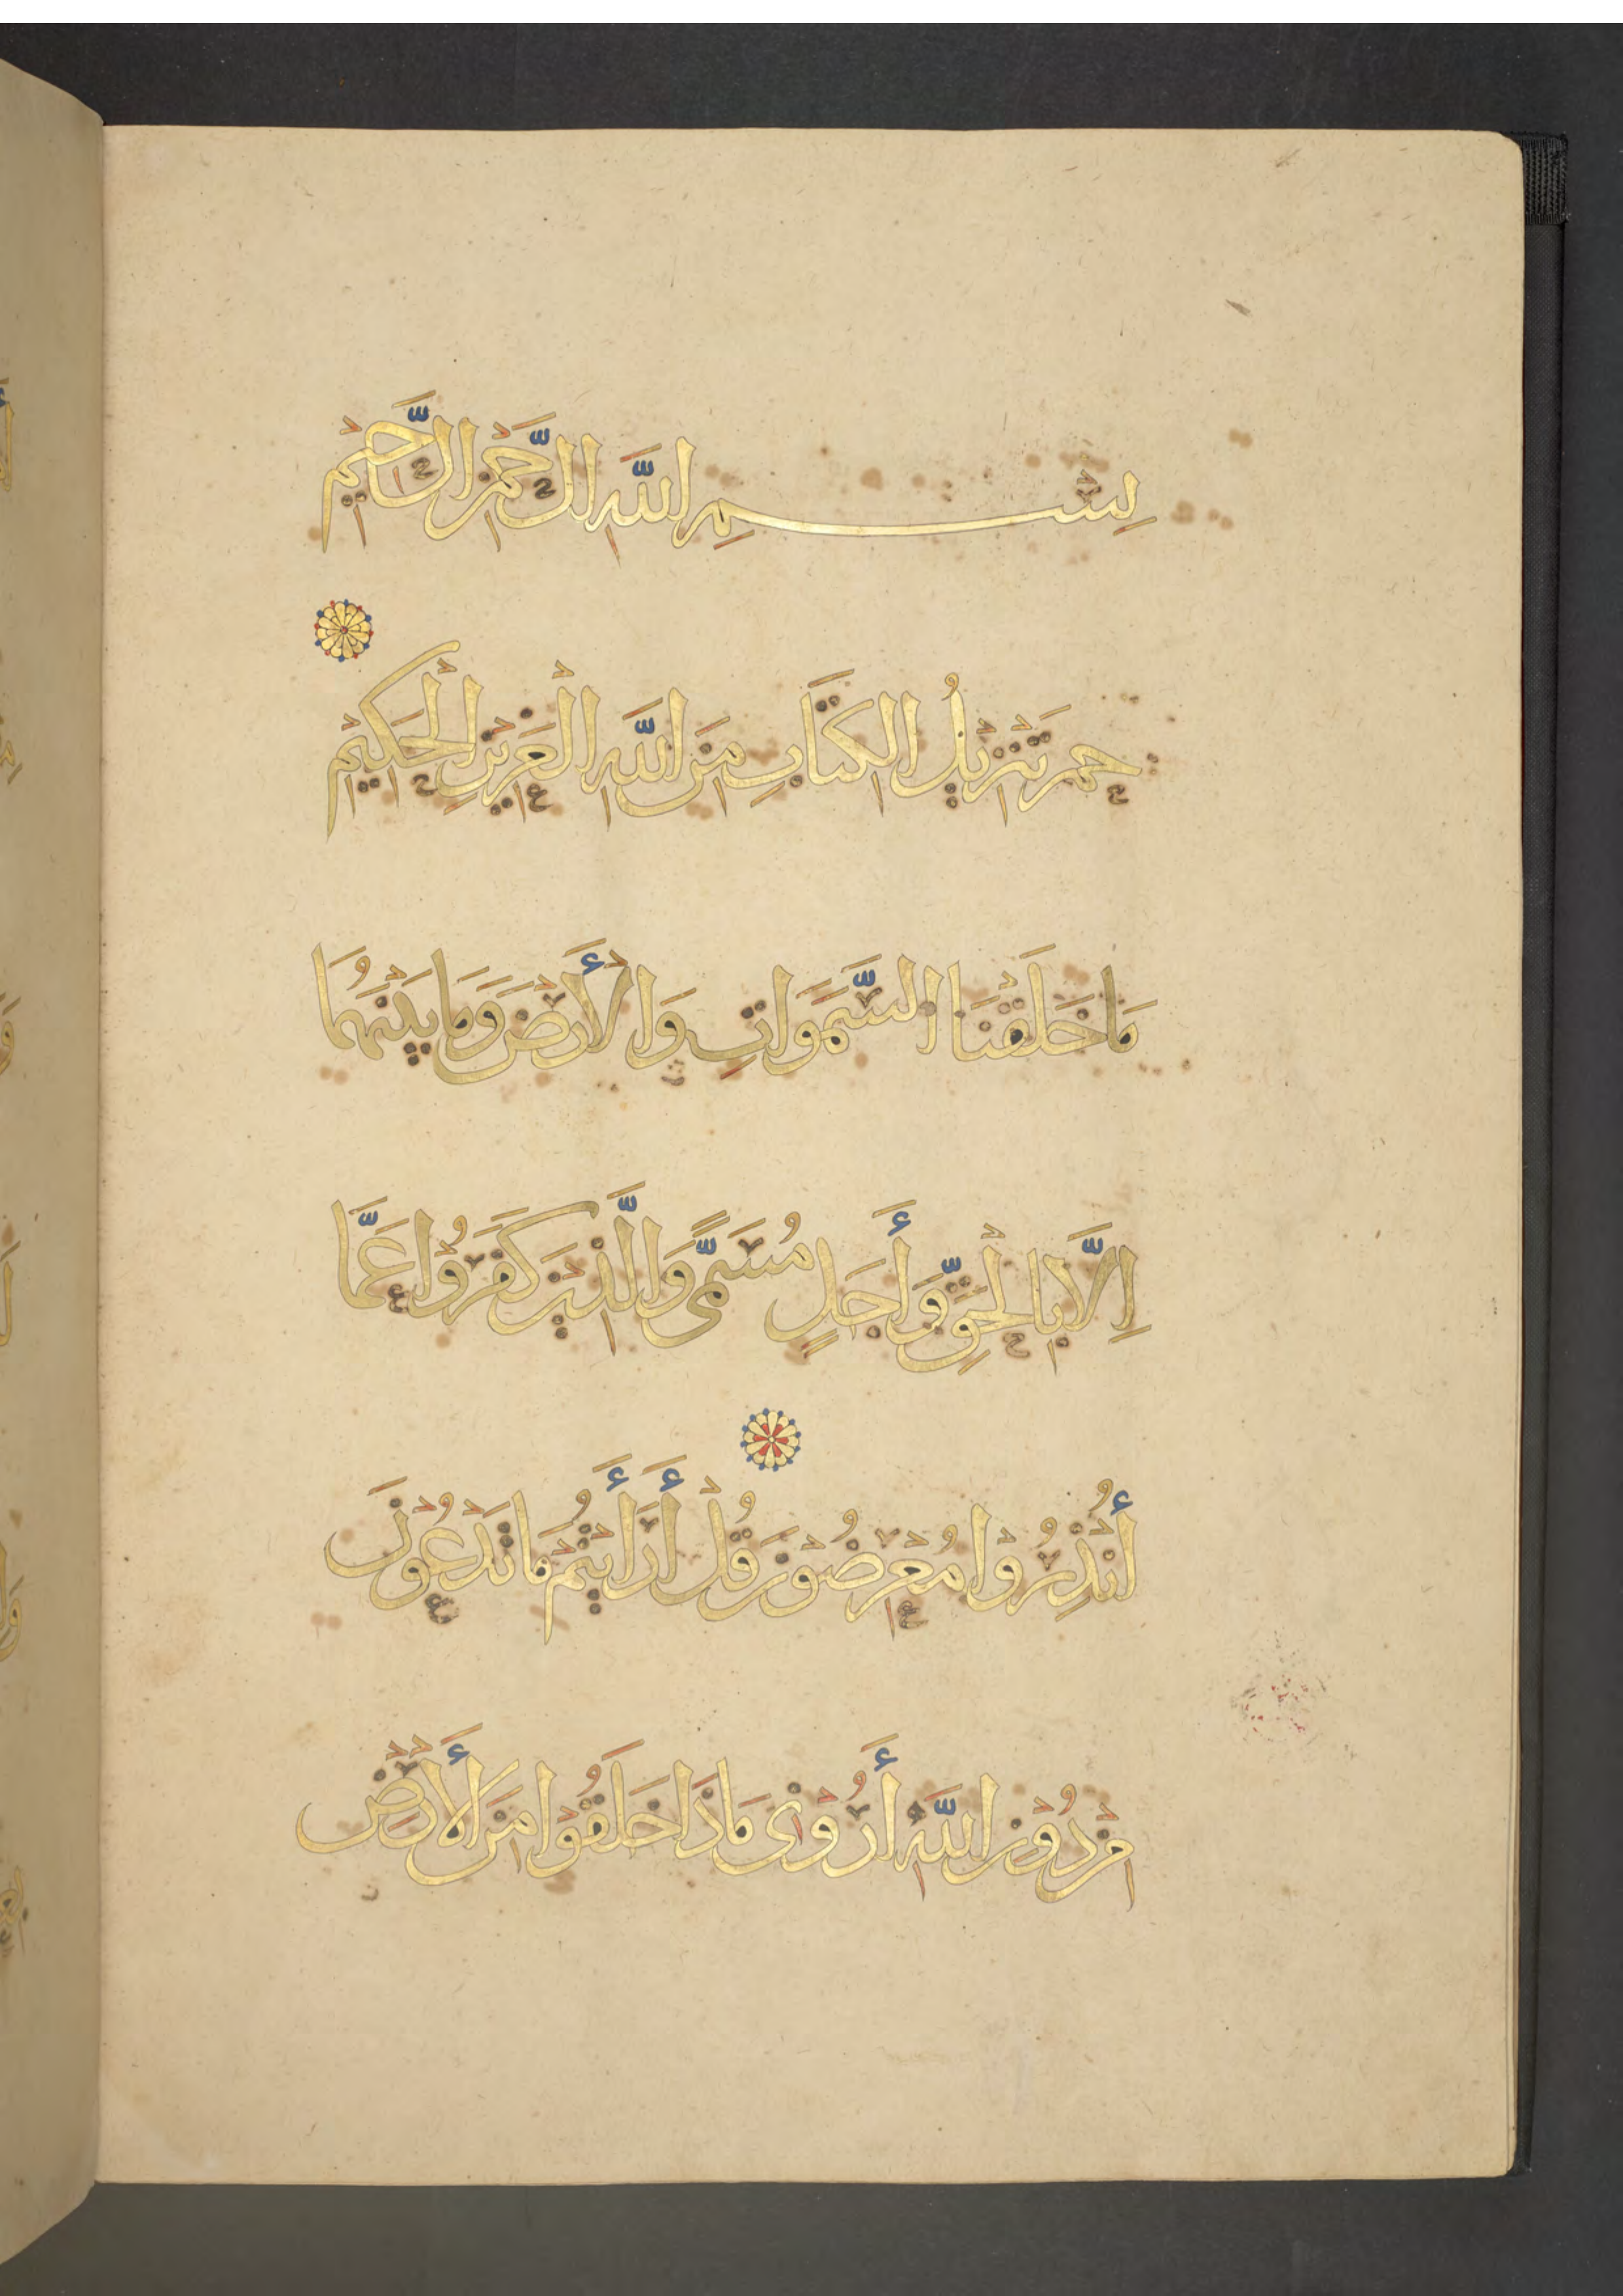 بِسْمِ اللَّهِ الرَّحْمٰنِ الرَّحِيْمِ
حم تَنْزِيْلُ الْكِتَابِ مِنَ اللَّهِ الْعَزِيْزِ الْحَكِيْمِ
مَا خَلَقْنَا السَّمَوَاتِ وَالْأَرْضَ وَمَا بَيْنَهُمَا
اِلَّا بِالْحَقِّ وَأَجَلٍ مُسَمًّى وَالَّذِيْنَ كَفَرُوْا عَمَّا
أُنْذِرُوْا مُعْرِضُوْنَ قُلْ أَرَأَيْتُمْ مَا تَدْعُوْنَ
مِنْ دُوْنِ اللَّهِ أَرُوْنِى مَاذَا خَلَقُوْا مِنَ الْأَرْضِ